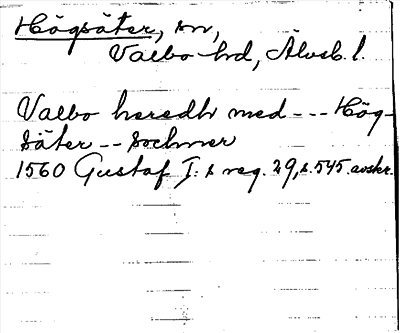 Högsäter, sn,
Valbo hd, Älvsb. l.
Valbo heredh med --- Hög-
säter -- Sochner
1560 Gustaf I:s reg. 29, s. 545. avskr.